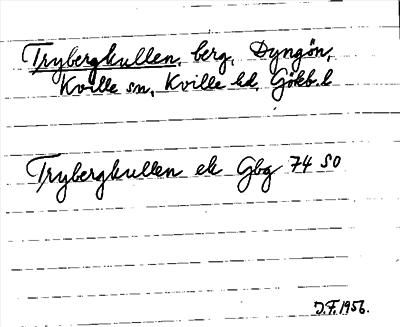 Trybergkullen, berg, Dyngön,
Kville sn, Kville hd, Gökb. l
Trybergkullen ek Gbg 74 SO
J.F. 1956.